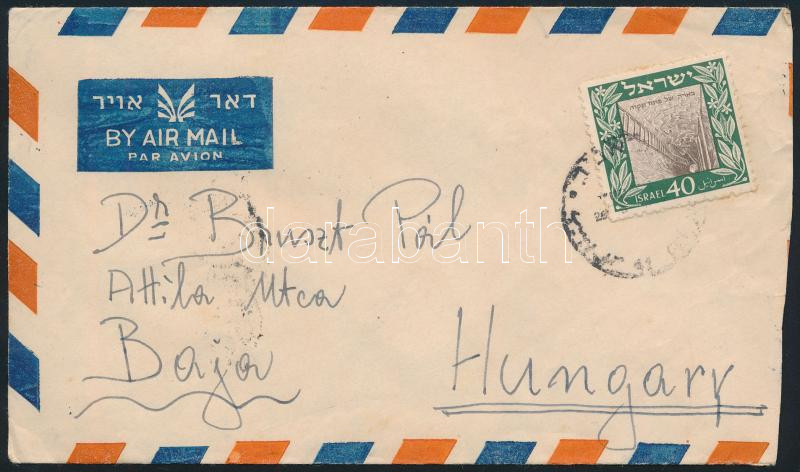 דאר אויר
BY AIR MAIL
PAR AVION
ישראל
בארה של פתח תקוה
ISRAEL 40 اسرائيل
Dr Bruszt Pál
Attila Utca
Baja
Hungary
darabanth